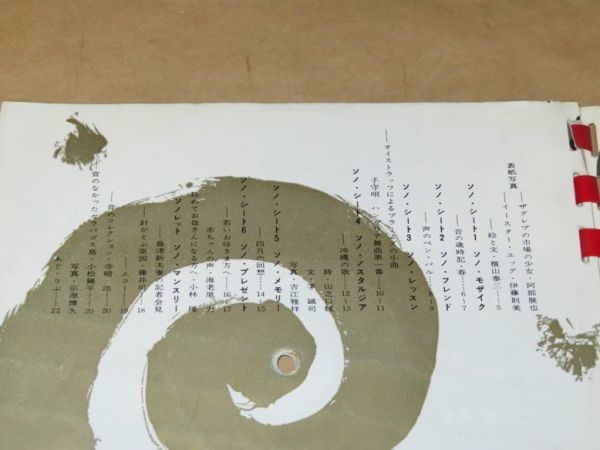 表紙写真
――ザグレブの市場の少女・阿部展也
――イースター・エッグ・伊藤則美
――絵と文・横山泰三……5
ソノ・シート1 ソノ・モザイク
――音の歳時記・春……6~7
ソノ・シート2 ソノ・フレンド
――声のペン・パル……8~9
ソノ・シート3 ソノ・レッスン
――オイストラッフによるブラームス小曲
子守唄 ハンガリア舞曲第一番……10~11
ソノ・シート4 ソノ・ノスタルジア
――沖縄の歌……12~13
詩・山之口貘
文・矛 誠司
写真・吉江雅祥
ソノ・シート5 ソノ・メモリー
――四月の回想……14~15
ソノ・シート6 ソノ・プレゼント
――若いお母さま方へ……16~17
赤ちゃんの声・海老原 万
初めてお母さんになる方へ・小林 隆
ソノレット ソノ・マンスリー
――島津新夫妻の記者会見
――針がとぶ原因・藤井 ……18
――エコー……19
――音のコレクション・寺崎 浩……20
――音のなかったガラパゴス島・小松錬平……20
写真・宗源博久
あど・りぶ……22